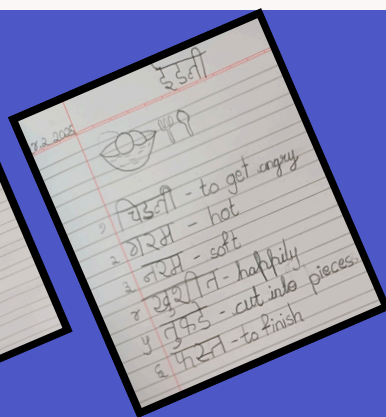 इडली
४.2.2025
१ चिडली - to get angry
२ गरम - hot
३ नरम - soft
४ खुशीत - happily
५ तुकडे - cut into pieces.
६ फस्त - to finish